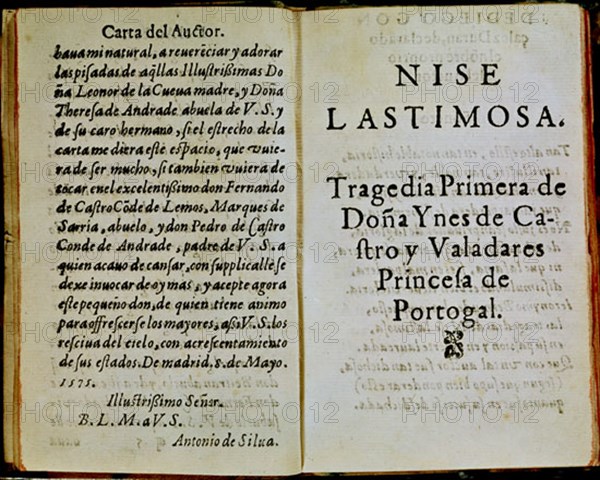 Carta del Auctor.
bauami natural, a reuerẽciar y adorar
las pisadas de aq̃llas Illustrißimas Do
ña Leonor de la Cueua madre, y Doña
Theresa de Andrade abuela de V. S. y
de su caro hermano, si el estrecho de la
carta me diera este espacio, que vuie-
ra de ser mucho, si tambien vuiera de
tocar en el excelentißimo don Fernando
de Castro Cõde de Lemos, Marques de
Sarria, abuelo, y don Pedro de Castro
Conde de Andrade, padre de V. S. a
quien acauo de cansar, con supplicalle se
dexe inuocar de oy mas, y acepte agora
este pequeño don, de quien tiene animo
para offrescerse los mayores, aßi V. S. los
resciua del cielo, con acrescentamiento
de sus estados. De madrid, 8. de Mayo.
1575.
Illustrißimo Señor.
B. L. M. a V. S.
Antonio de Silua.
NISE
LASTIMOSA.
Tragedia Primera de
Doña Ynes de Ca-
stro y Valadares
Princesa de
Portogal.